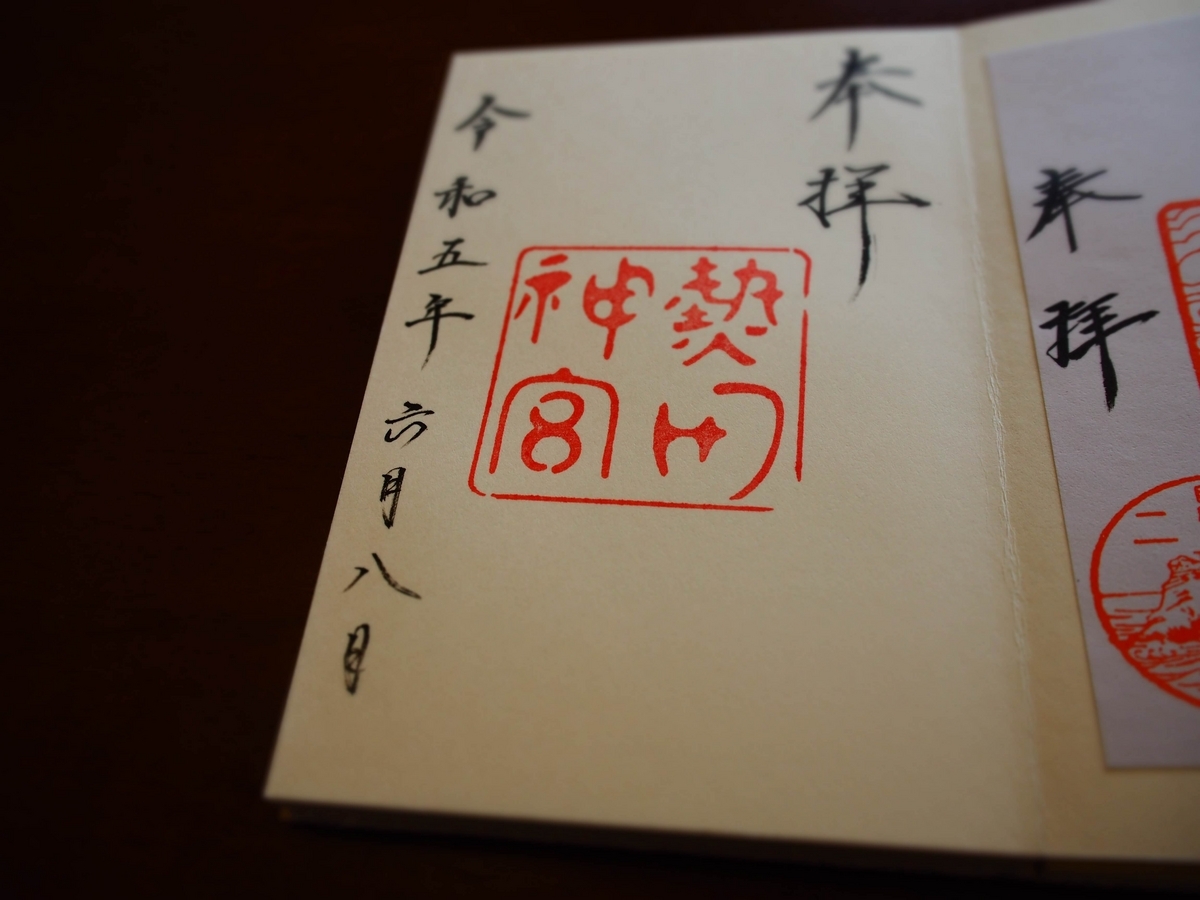 奉拝
奉拝
熱田
神宮
令和五年六月八日